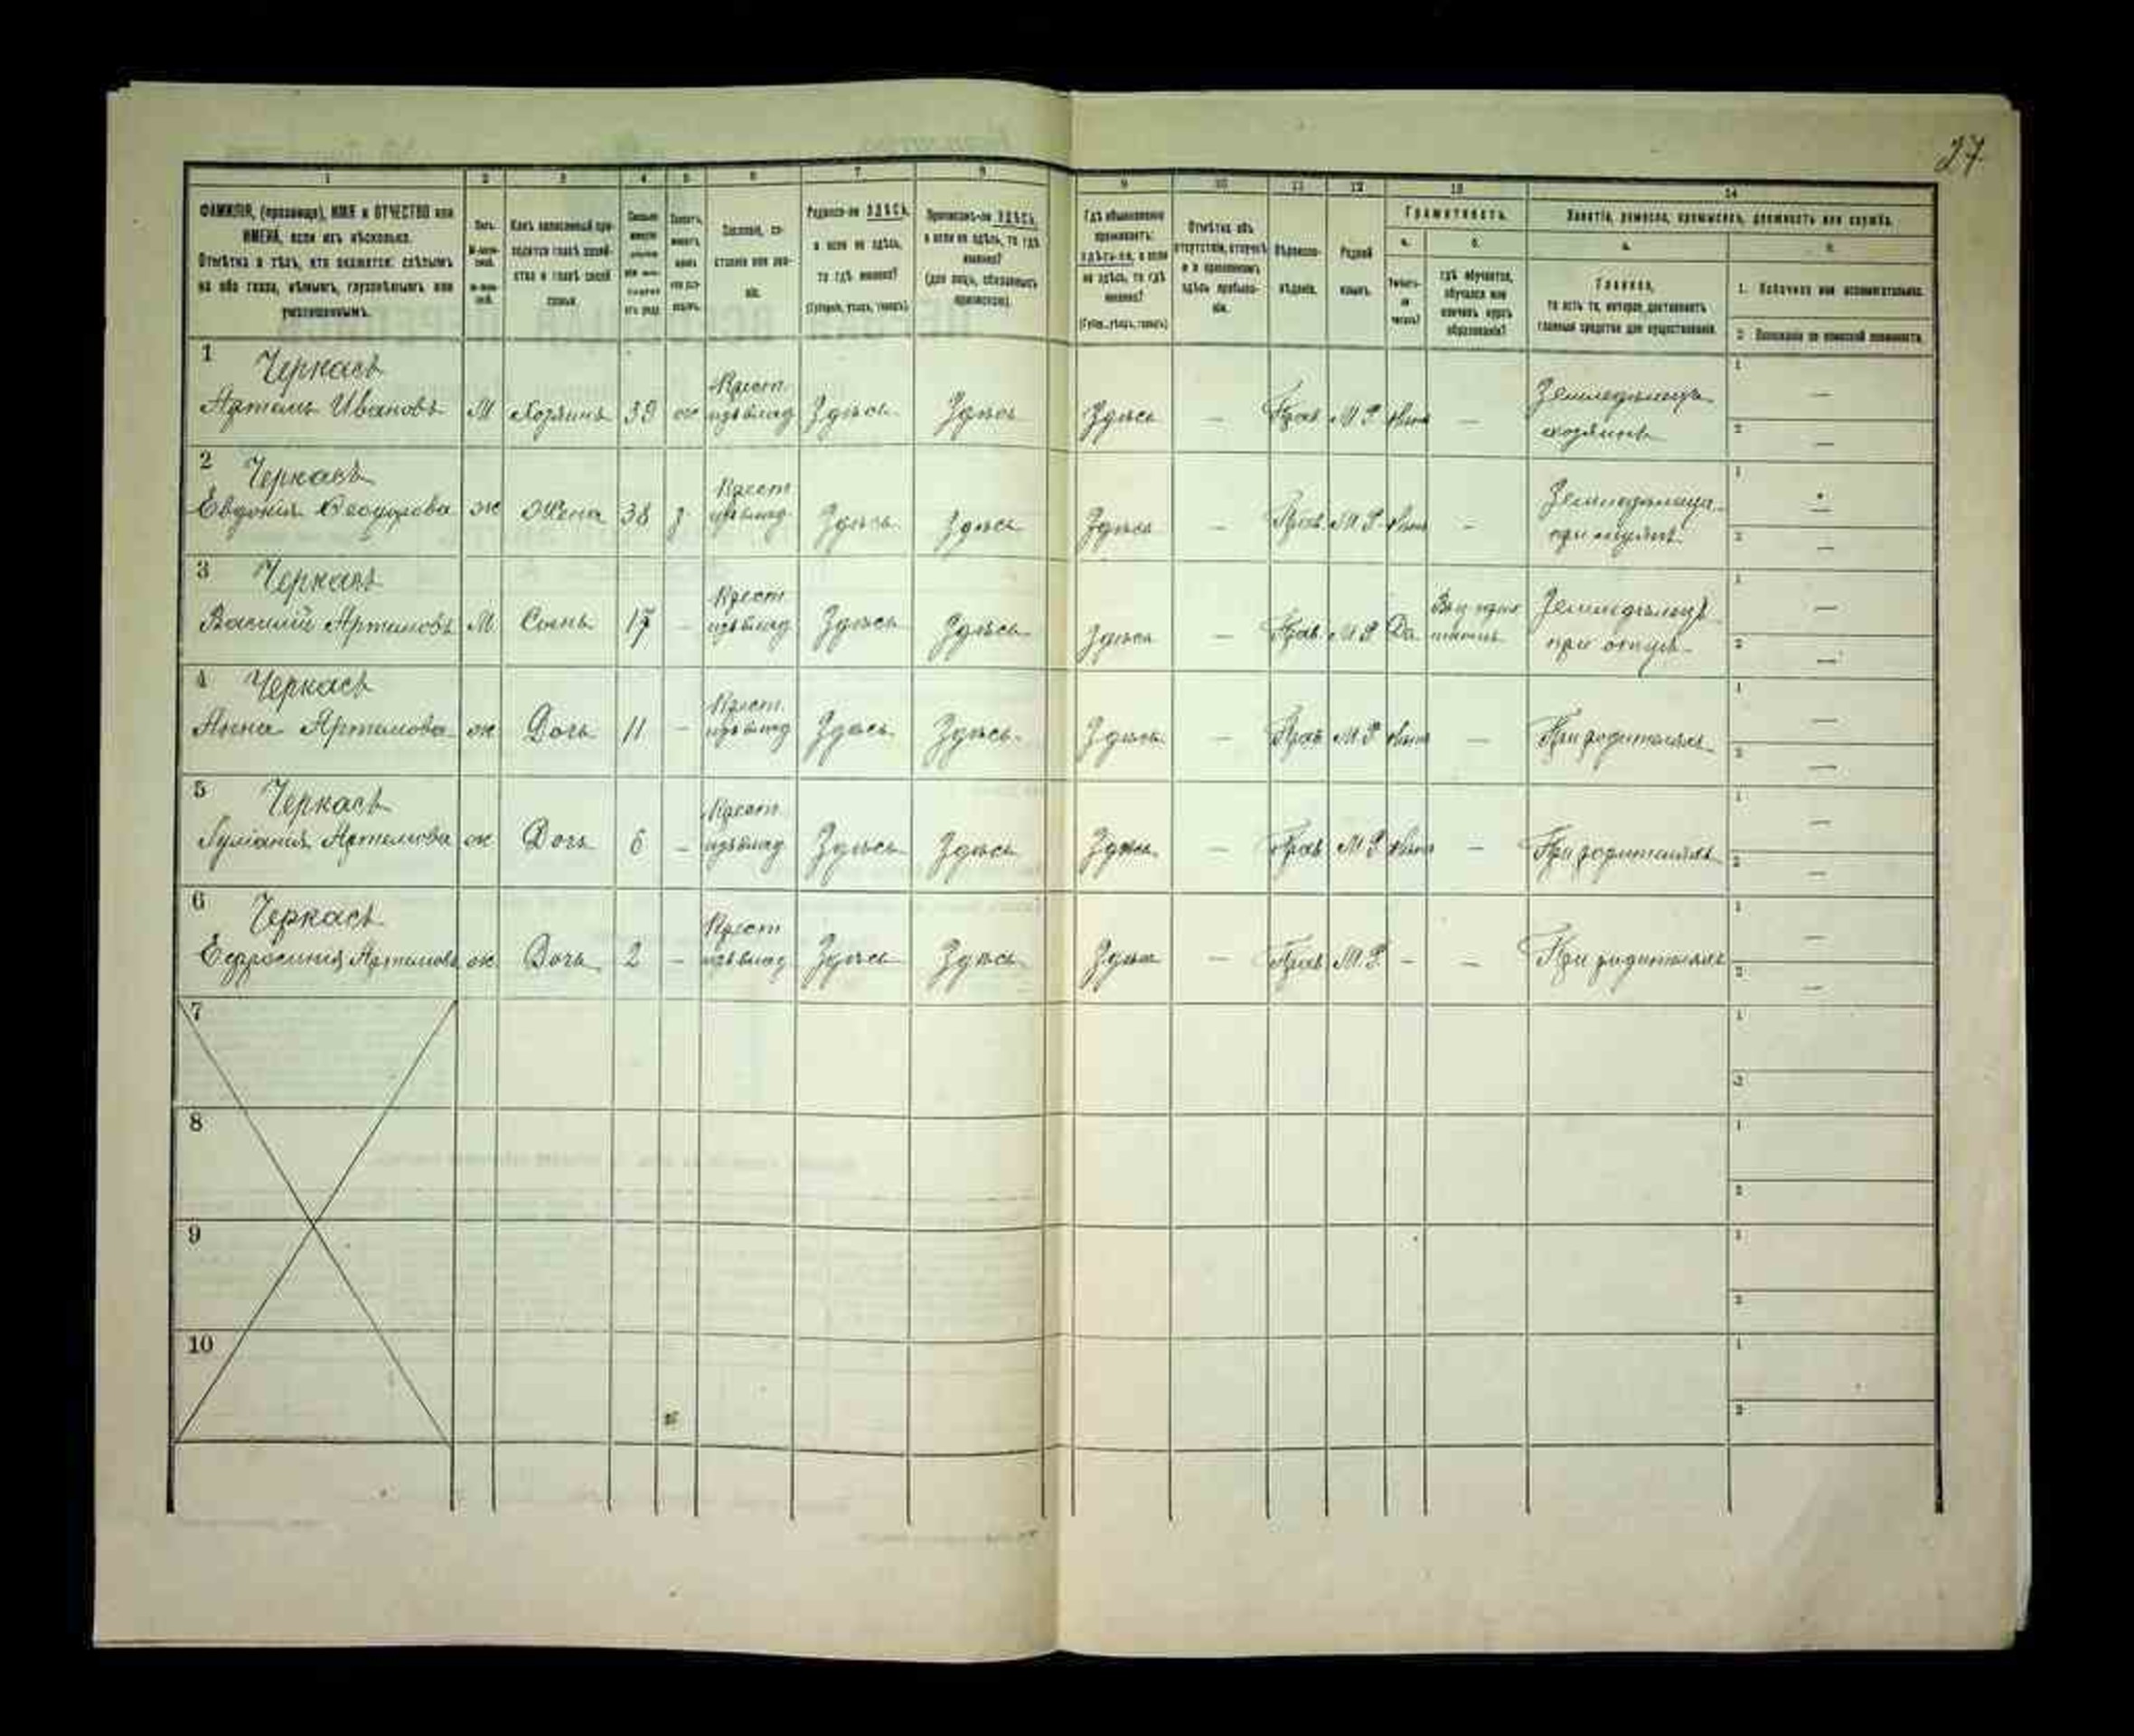 27
1 2 3 4 5 6 7 8 9 10 11 12 13 14
ФАМИЛІЯ, (прозвище), ИМЯ и ОТЧЕСТВО или
ИМЕНА, если ихъ нѣсколько.
Отмѣтка о тѣхъ, кто окажется: слѣпымъ
на оба глаза, нѣмымъ, глухонѣмымъ или
умалишеннымъ.
Полъ.
Какъ записанный при-
ходится главѣ хозяй-
ства и главѣ своей
семьи.
Сословіе, со-
стояніе или зва-
ніе.
Родился-ли ЗДѢСЬ,
а если не здѣсь,
то гдѣ именно?
(Губернія, уѣздъ, городъ)
Приписанъ-ли ЗДѢСЬ,
а если не здѣсь, то гдѣ
именно?
(для лицъ, обязанныхъ
припискою)
Гдѣ обыкновенно
проживаетъ:
здѣсь-ли, а если
не здѣсь, то гдѣ
именно?
(Губер., уѣздъ, городъ)
Отмѣтка объ
отсутствіи, отлучкѣ
и о временномъ
здѣсь пребыва-
ніи.
Вѣроиспо-
вѣданіе.
Родной
языкъ.
Грамотность.
а. б.
Умѣетъ-
ли
читать?
гдѣ обучается,
обучался или
кончилъ курсъ
образованія?
Занятіе, ремесло, промыселъ, должность или служба.
а. б.
Главное,
то есть то, которое доставляетъ
главныя средства для существованія.
1. Побочное или вспомогательное.
2. Положеніе по воинской повинности.
1 Черкасъ
Артемъ Ивановъ М Хозяинъ 39 ж Крест. изъ влад Здѣсь Здѣсь Здѣсь — Прав М Р Нѣтъ — Земледѣлецъ хозяинъ 1 — 2 —
2 Черкасъ
Евдокія Ѳеодорова ж Жена 38 з Крест изъ влад Здѣсь Здѣсь Здѣсь — Прав М Р Нѣтъ — Земледѣлица при мужѣ 1 — 2 —
3 Черкасъ
Василій Артемовъ М Сынъ 17 — Крест изъ влад Здѣсь Здѣсь Здѣсь — Прав М Р Да Земледѣлецъ при отцѣ 1 — 2 —
4 Черкасъ
Анна Артемова ж Дочь 11 — Крест. изъ влад Здѣсь Здѣсь Здѣсь — Прав М Р Нѣтъ — При родителяхъ 1 — 2 —
5 Черкасъ
Артемова ж Дочь 6 — Крест. изъ влад Здѣсь Здѣсь Здѣсь — Прав М Р Нѣтъ — При родителяхъ 1 — 2 —
6 Черкасъ
Ефросинія Артемова ж Дочь 2 — Крест изъ влад Здѣсь Здѣсь Здѣсь — Прав М.Р. — — При родителяхъ 1 — 2 —
7 1 2
8 1 2
9 1 2
10 1 2